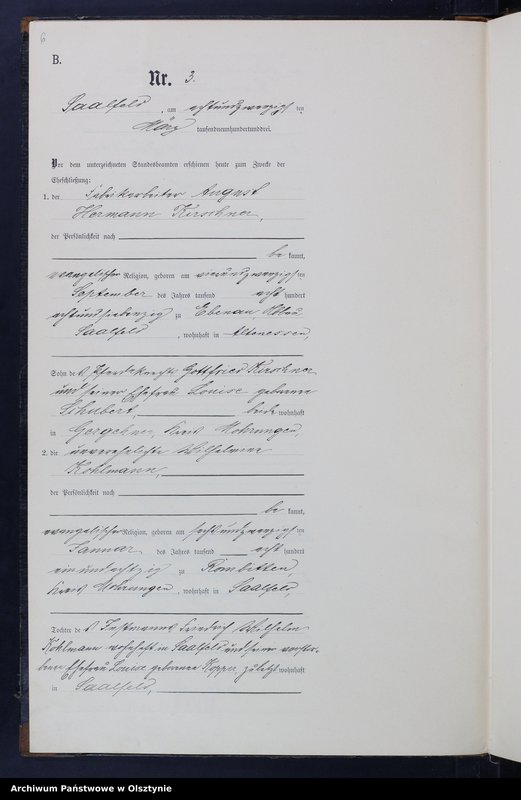 6
B.
Nr. 3.
Saalfeld, am achtundzwanzigsten
März tausendneunhundertunddrei.
Vor dem unterzeichneten Standesbeamten erschienen heute zum Zwecke der
Eheschließung:
1. der Fabrikarbeiter August
Hermann Kirschner,
der Persönlichkeit nach
be kannt,
evangelischer Religion, geboren am vierundzwanzigsten
September des Jahres tausend acht hundert
achtundsiebenzig zu Ebenau,
Saalfeld, wohnhaft in Altenessen,
Sohn des Pferdeknechts Gottfried Kirschner
und seiner Ehefrau Louise geborene
Schubert, beide wohnhaft
in Gergehnen, Kreis Mohrungen,
2. die unverehelichte Wilhelmine
Kohlmann,
der Persönlichkeit nach
be kannt,
evangelischer Religion, geboren am sechsundzwanzigsten
Januar des Jahres tausend acht hundert
einundachtzig zu Rombitten,
Kreis Mohrungen, wohnhaft in Saalfeld,
Tochter des Instmanns Friedrich Wilhelm
Kohlmann wohnhaft in Saalfeld und seiner verstor-
benen Ehefrau Louise geborenen zuletzt wohnhaft
in Saalfeld,
Archiwum Państwowe w Olsztynie